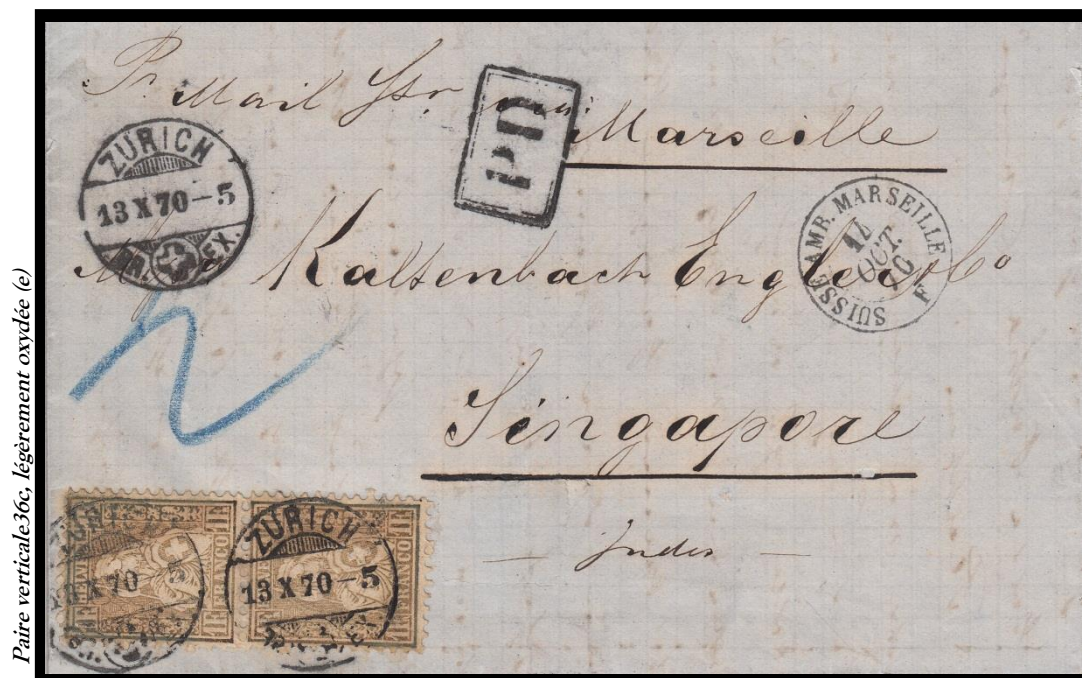 Paire verticale36c, légèrement oxydée (e)
Pr Mail Str via Marseille
PD
ZÜRICH
13 X 70 – 5
EX.
SUISSE AMB. MARSEILLE
14
OCT.
F
Kaltenbach Engler & Co
Singapore
— Indes —
FRANCO
1 F
1 F
FRANCO
13 X 70
ZÜRICH
13 X 70 – 5
EX